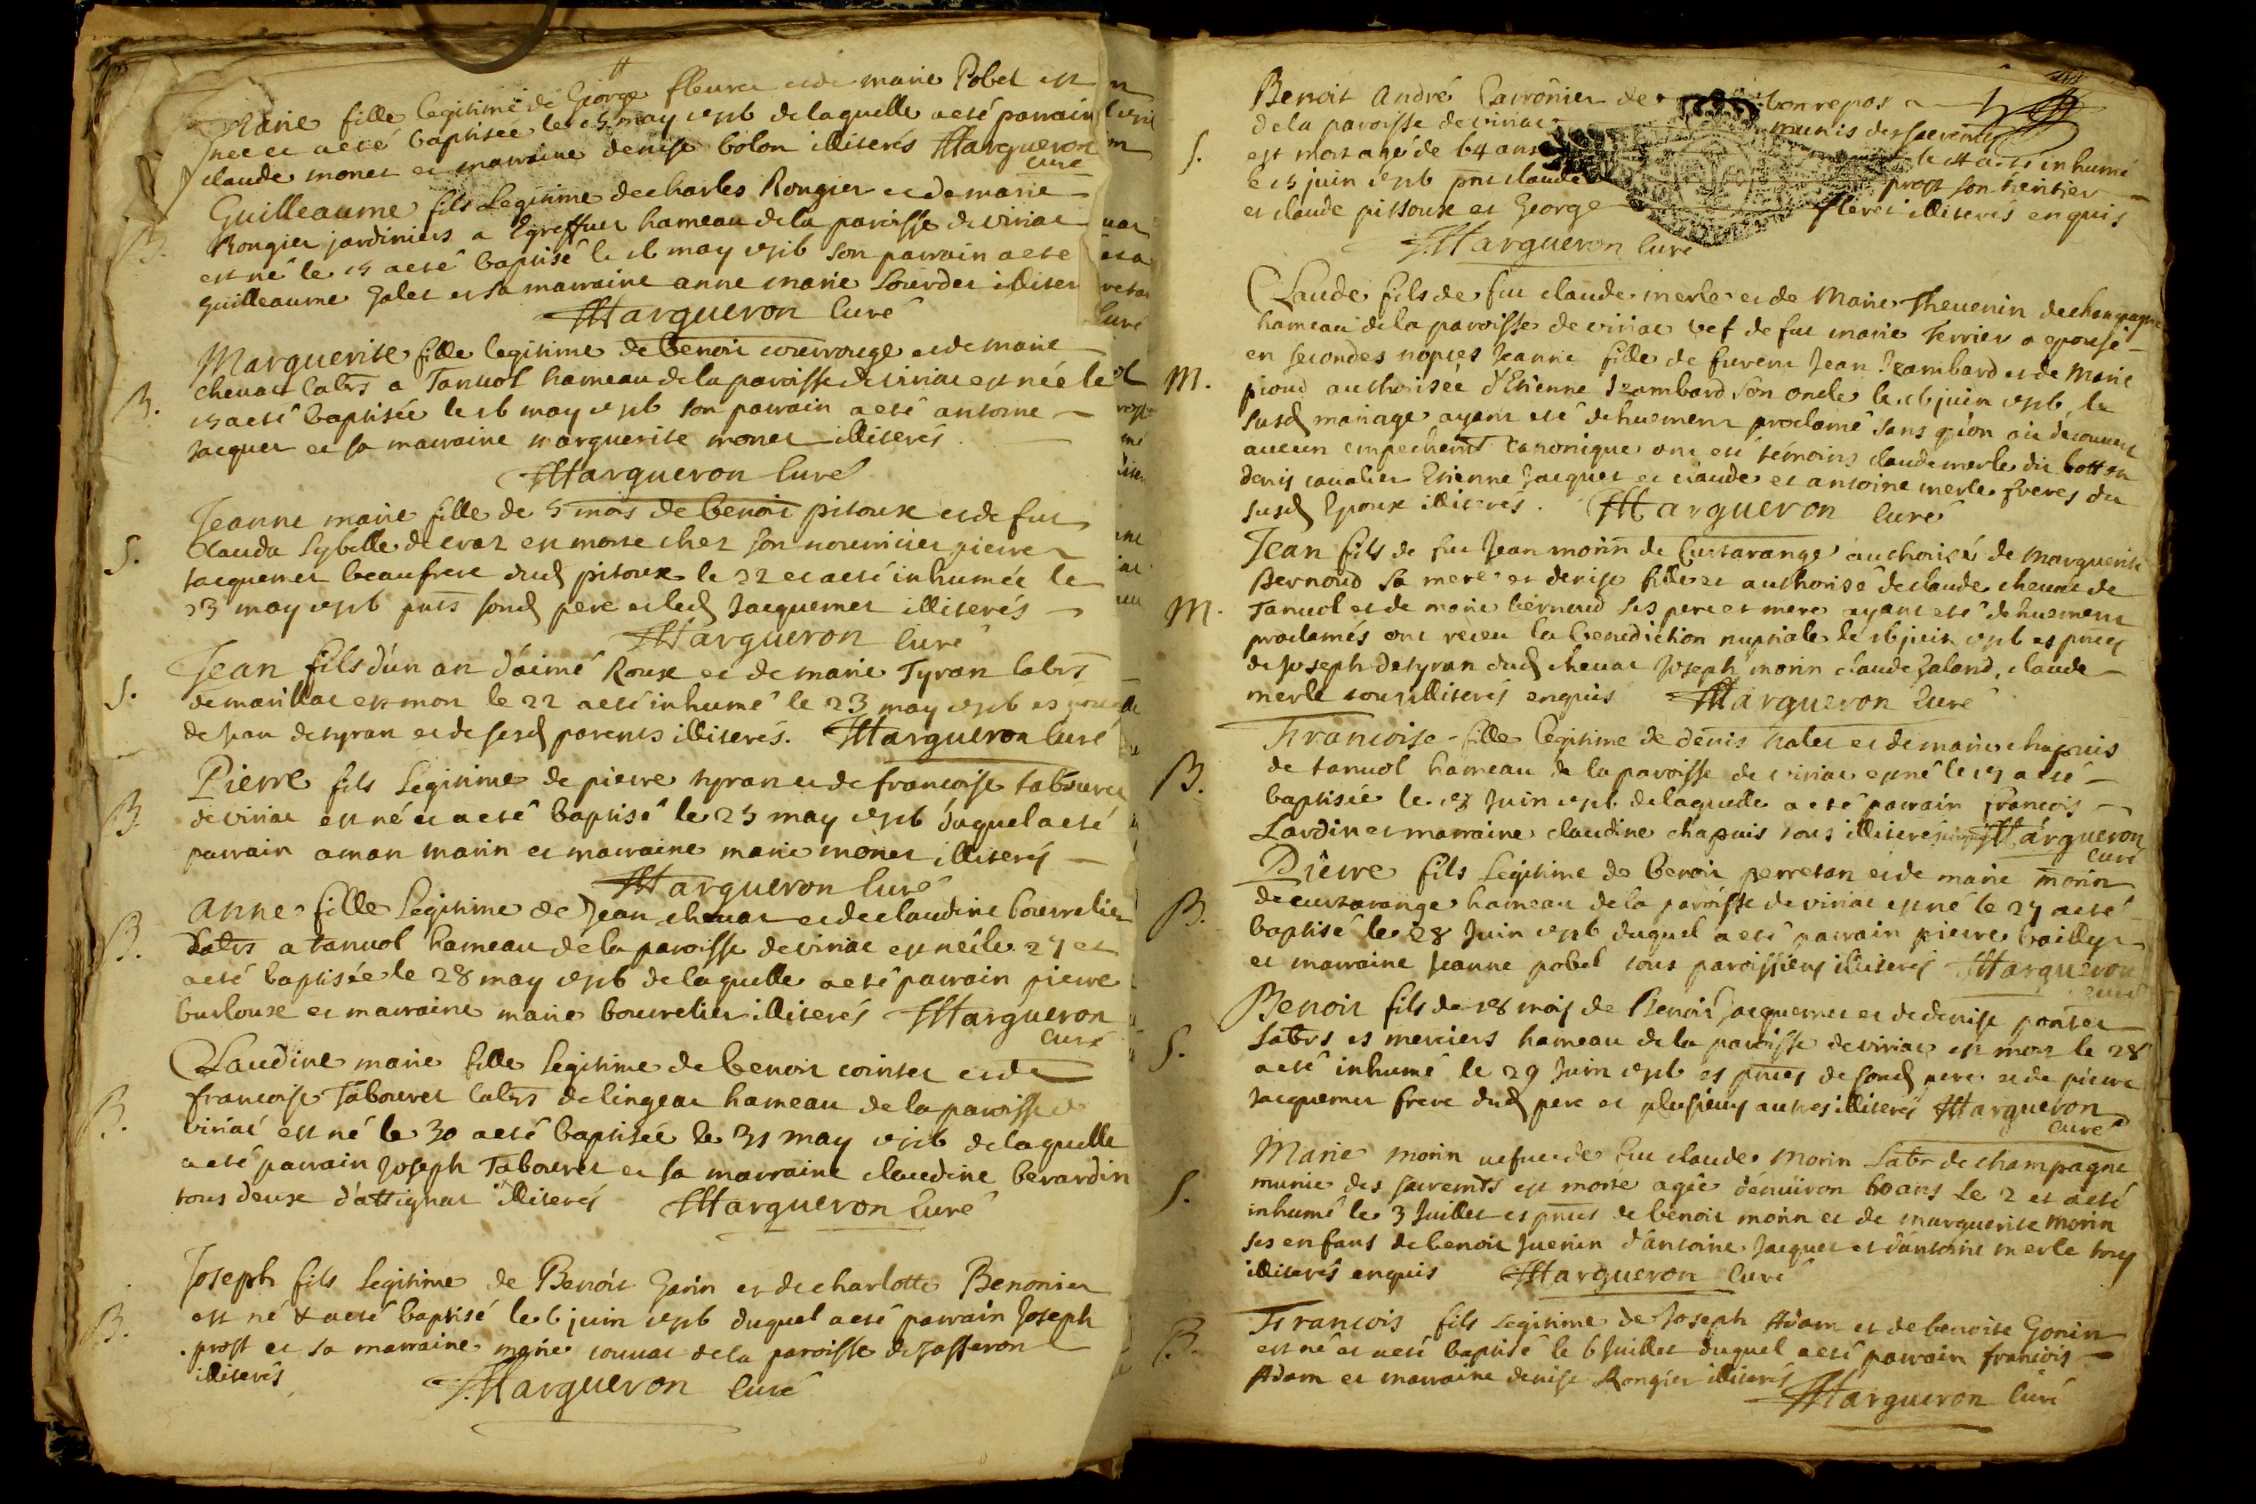 Marie fille legitime de George fleuret et de marie Pobel est
née et a eté baptisee le 15 may 1716 de laquelle a eté parrain
claude monet et marraine denise bolon illiterés Margueron
curé
B.
Guilleaume fils Legitime de charles Rongier et de marie
Rongier jardiniers a Egreffuet hameau de la paroisse de viriat
est né le 15 a eté baptisé le 16 may 1716 son parrain a eté
guilleaume Jalet et sa marraine anne marie Sourdet illiter
Margueron Curé
Marguerite fille legitime de benoit courrouge et de marie
B.
chevat labrs a Tanuol hameau de la paroisse de viriat est née le
15 a eté baptisée le 16 may 1716 son parrain a eté antoine
Jacquet et sa marraine marguerite monet illiterés
Margueron Curé
Jeanne marie fille de 5 mois de benoit pitoux et de fue
S.
Clauda Sybelle de cras est morte chez son nourricier pierre
Jacquemet beaufrere dud pitoux le 22 et a eté inhumée le
23 may 1716 pnts sond pere et led Jacquemet illiterés
Margueron Curé
Jean fils d'un an d'aimé Roux et de marie Tyran labrs
S.
de marillat est mort le 22 a eté inhumé le 23 may 1716 es
de Jean detyran et de sesd parents illiterés. Margueron Curé
Pierre fils Legitime de pierre tyran et de francoise tabouret
B.
de viriat est né et a eté baptisé le 25 may 1716 duquel a eté
parrain aman marin et marraine marie monet illiterés
Margueron Curé
Anne fille Legitime de Jean chevat et de claudine bourrelier
B.
Labrs a tanuol hameau de la paroisse de viriat est née le 27 et
a eté baptisée le 28 may 1716 de laquelle a eté parrain pierre
burloux et marraine marie bourrelier illiterés Margueron
Curé
Claudine marie fille legitime de benoit cointet et de
B.
francoise Tabouret labrs de lingeat hameau de la paroisse de
viriat est né le 30 a eté baptisée le 31 may 1716 de laquelle
a eté parrain Joseph Tabouret et sa marraine claudine berardin
tous deux d'attignat illiterés Margueron Curé
Joseph fils legitime de Benoit Garin et de charlotte Benonier
B.
est né & a eté baptisé le 6 juin 1716 duquel a eté parrain Joseph
prost et sa marraine marie convat de la paroisse de Jasseron
illiterés
Margueron Curé
Benoit André Carronier de bonrepos
de la paroisse de viriat munis des sacrements
S.
est mort agé de 64 ans inhumé
le 15 juin 1716 pnt claude prost son heritier
et claude pitoux et George illiterés enquis
Margueron Curé
Claude fils de fut claude merle et de Marie Thevenin de champagne
hameau de la paroisse de viriat vef de fue marie Terrier a epousé
M.
en secondes nopces Jeanne fille de furent Jean Jzambard et de Marie
pioud authorisée d'Etienne Jzambard son oncle le 16 juin 1716 le
susd mariage ayant eté dehuement proclamé sans qu'on ait decouvert
aucun empechemt canonique ont eté témoins claude merle dit
denis cavalier Etienne Jacquet et claude et antoine merle freres du
susd Epoux illiterés. Margueron Curé
Jean fils de fut Jean morin de Curtarange authorisés de Marguerite
Bernoud sa mere et denise fille et authorisé de claude chevat de
M.
Tanuol et de marie bernoud ses pere et mere ayant eté dehuement
proclamés ont receu la benediction nuptiale le 16 juin 1716 es pnces
de Joseph detyran dud chevat Joseph morin claude Jaland, claude
merle tous illiterés enquis Margueron Curé
Francoise fille legitime de denis Jalet et de marie chapuis
B.
de tanuol hameau de la paroisse de viriat est né le 17 a eté
baptisée le 18 Juin 1716 de laquelle a eté parrain francois
Lardin et marraine claudine chapuis tous illiterés Margueron
Curé
Pierre fils Legitime de benoit perretan et de marie morin
B.
de curtarange hameau de la paroisse de viriat est né le 27 a eté
baptisé le 28 Juin 1716 duquel a eté parrain pierre bailly
et marraine Jeanne pobel tous paroissiens illiterés Margueron
curé
Benoit fils de 18 mois de Benoit Jacquemet et de denise pontet
S.
Labrs es merciers hameau de la paroisse de viriat est mort le 28
a eté inhumé le 29 Juin 1716 es pnces de sond pere et de pierre
Jacquemet frere dud pere et plusieurs autres illiterés Margueron
Curé
Marie morin vefue de fut claude Morin Labr de champagne
S.
munie des sacremts est morte agée d'enuiron 60 ans le 2 et a eté
inhumé le 3 Juillet es pnces de benoit morin et de marguerite morin
ses enfans de benoit Juenin d'antoine Jacquet et d'antoine merle tous
illiterés enquis Margueron Curé
Francois fils legitime de Joseph Adam et de benoite Gonin
B.
est né et a eté baptisé le 6 Juillet duquel a eté parrain francois
Adam et marraine denise Rongier illiterés
Margueron Curé